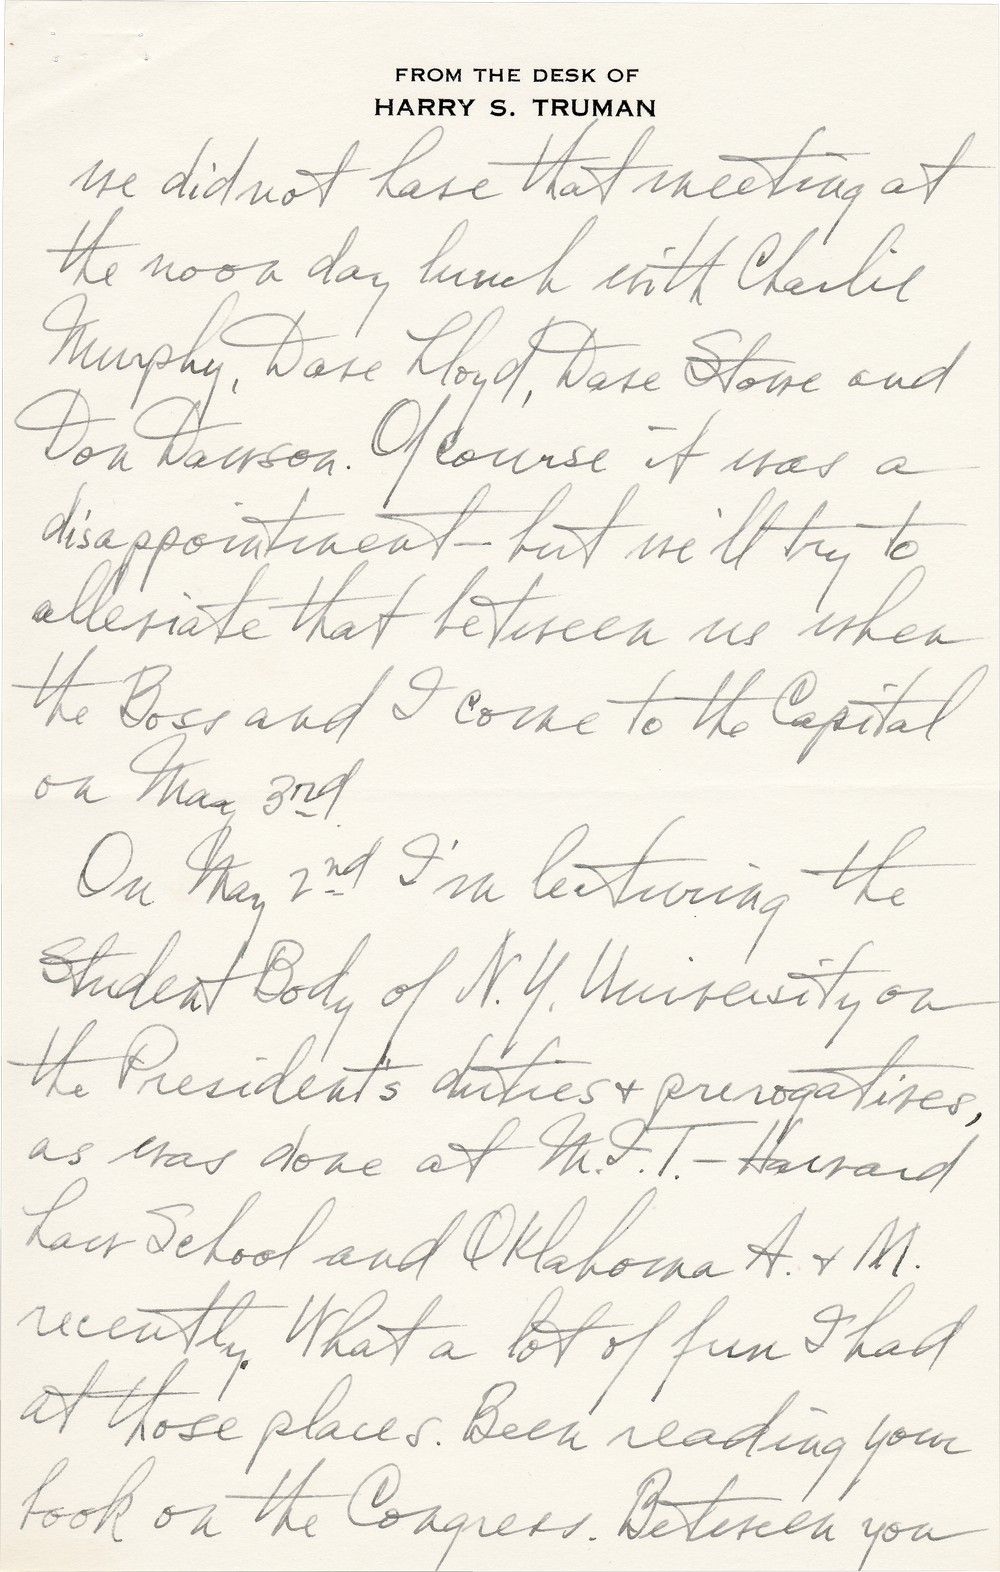 FROM THE DESK OF
HARRY S. TRUMAN
we did not have that meeting at
the noon day lunch with Charlie
Murphy, Dave Lloyd, Dave Stowe and
Don Dawson. Of course it was a
disappointment – but we'll try to
alleviate that between us when
the Boss and I come to the Capital
on May 3rd.
On May 2nd I'm lecturing the
Student Body of N.Y. University on
the President's duties & prerogatives,
as was done at M.I.T. – Harvard
Law School and Oklahoma A. & M.
recently. What a lot of fun I had
at those places. Been reading your
book on the Congress. Between you